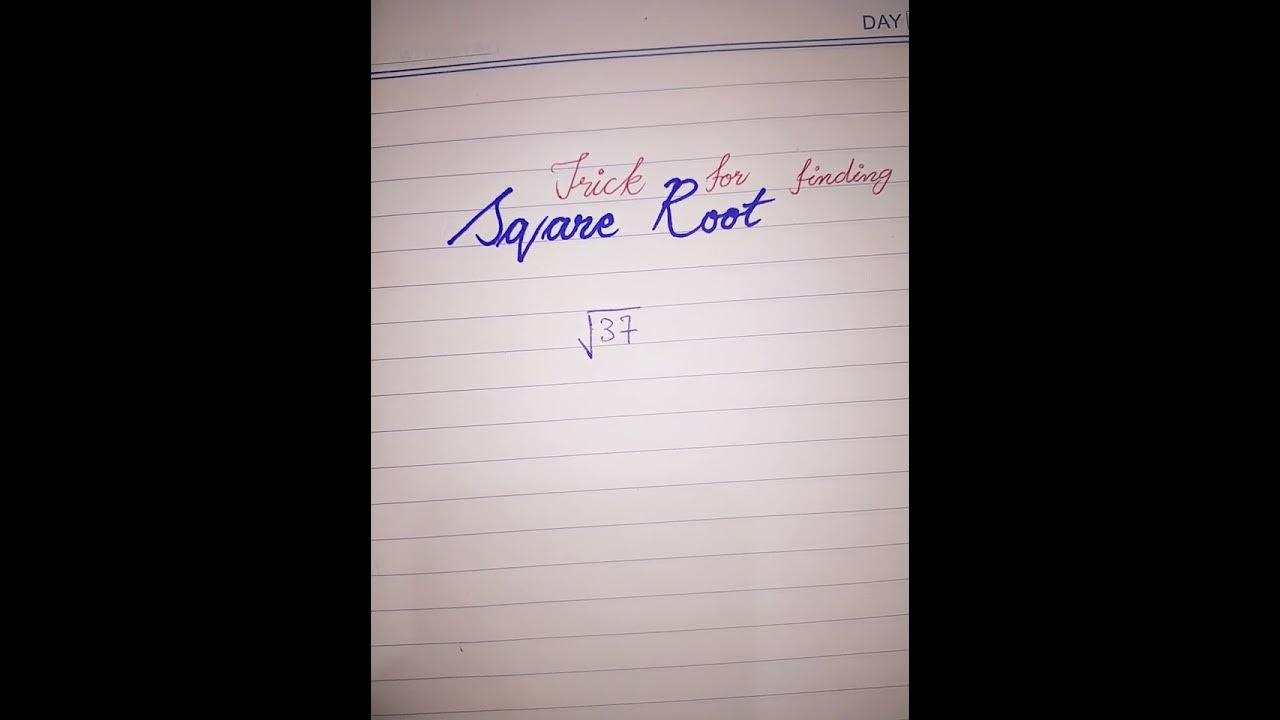 DAY
Trick for finding
Sqare Root
√37